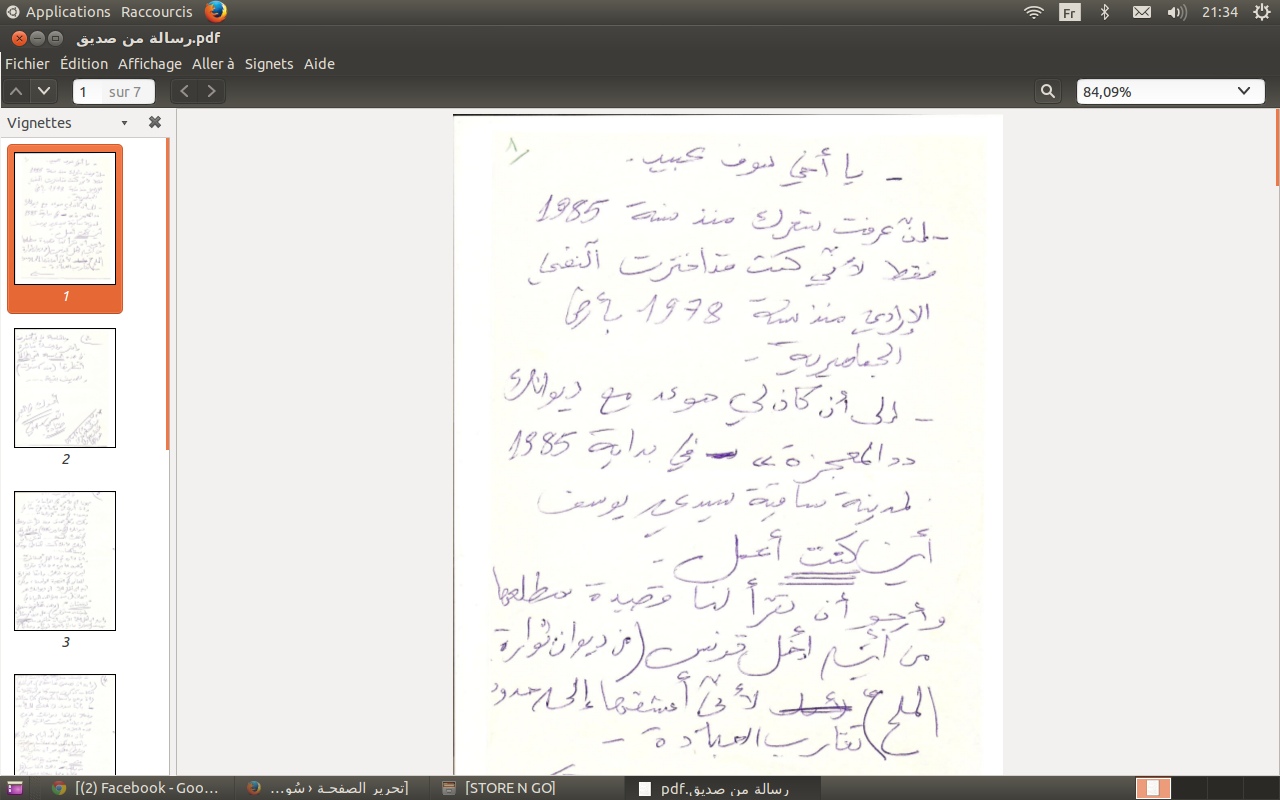 Applications Raccourcis Fr 21:34
رسالة من صديق.pdf
Fichier Édition Affichage Aller à Signets Aide
1 sur 7 84,09%
Vignettes
1
2
3
- يا أخي سوف عبيد -
عرفت شعرك منذ سنة 1985
فقط لأنّي كنت قد اخترت النفي
الإرادي منذ سنة 1978 بأرض
الجماهيرية -
- إلى أن كان لي موعد مع ديوانك
في بداية 1985
لمدينة ساقية سيدي يوسف
أين كنت أعمل -
وأرجو أن تقرأ لنا قصيدة مطلعها
من ديوان نوارة
الملح) لأنّي أعشقها إلى حدود
تقارب العبادة -
[(2) Facebook - Goo...
[تحرير الصفحـة ‹ سُو...
[STORE N GO]
رسالة من صديق.pdf